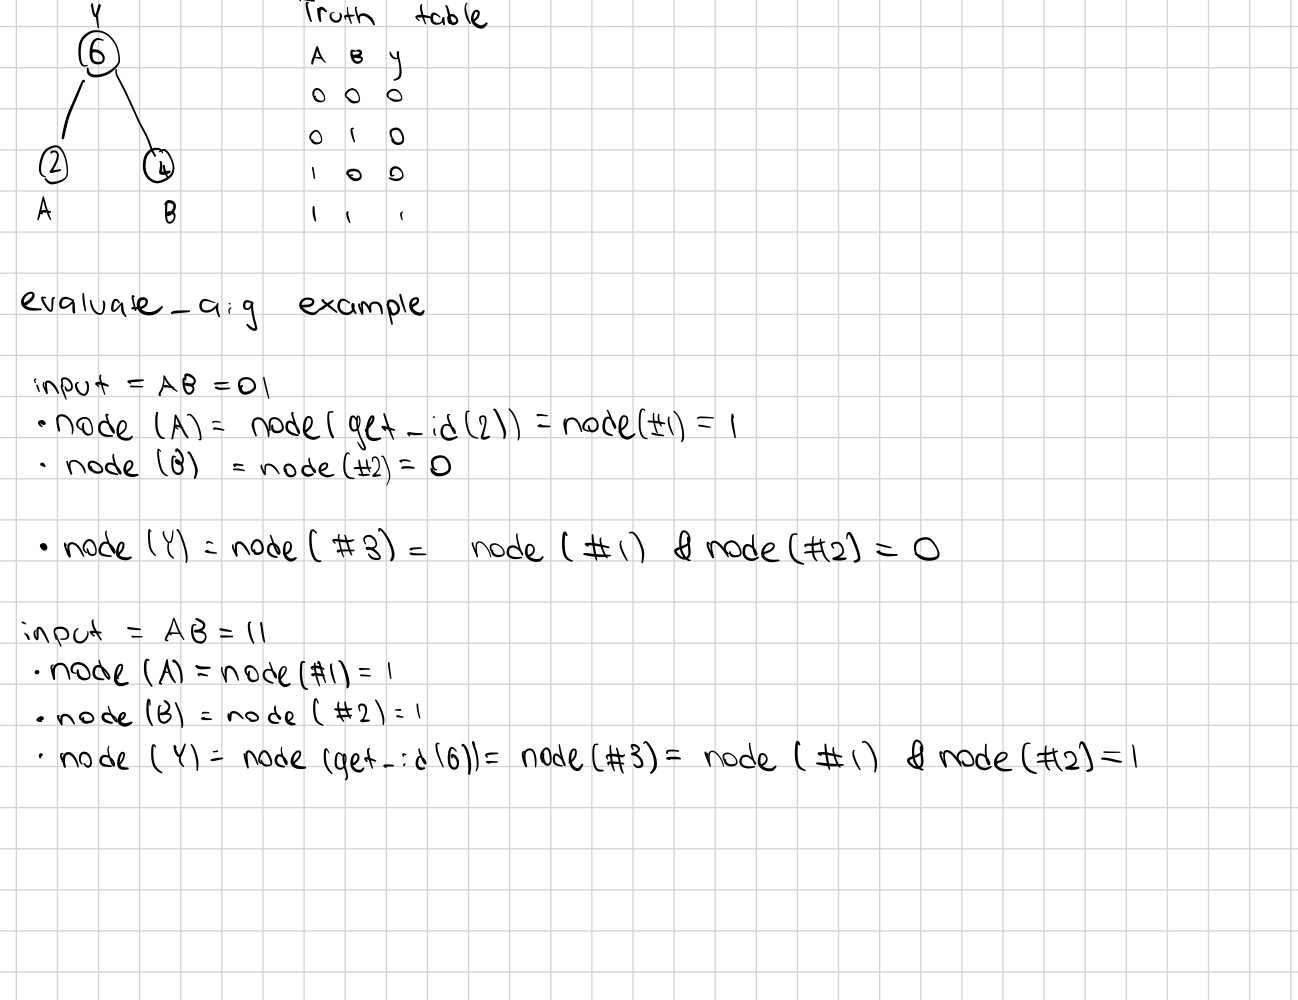 Y
6
2 4
A B
Truth table
A B y
0 0 0
0 1 0
1 0 0
1 1 1
evaluate_aig example
input = AB = 01
• node (A) = node( get_id(2)) = node(#1) = 1
• node (B) = node (#2) = 0
• node (Y) = node ( #3) = node ( #1) & node (#2) = 0
input = AB = 11
• node (A) = node (#1) = 1
• node (B) = node ( #2) = 1
• node (Y) = node (get_id(6)) = node (#3) = node ( #1) & node (#2) = 1